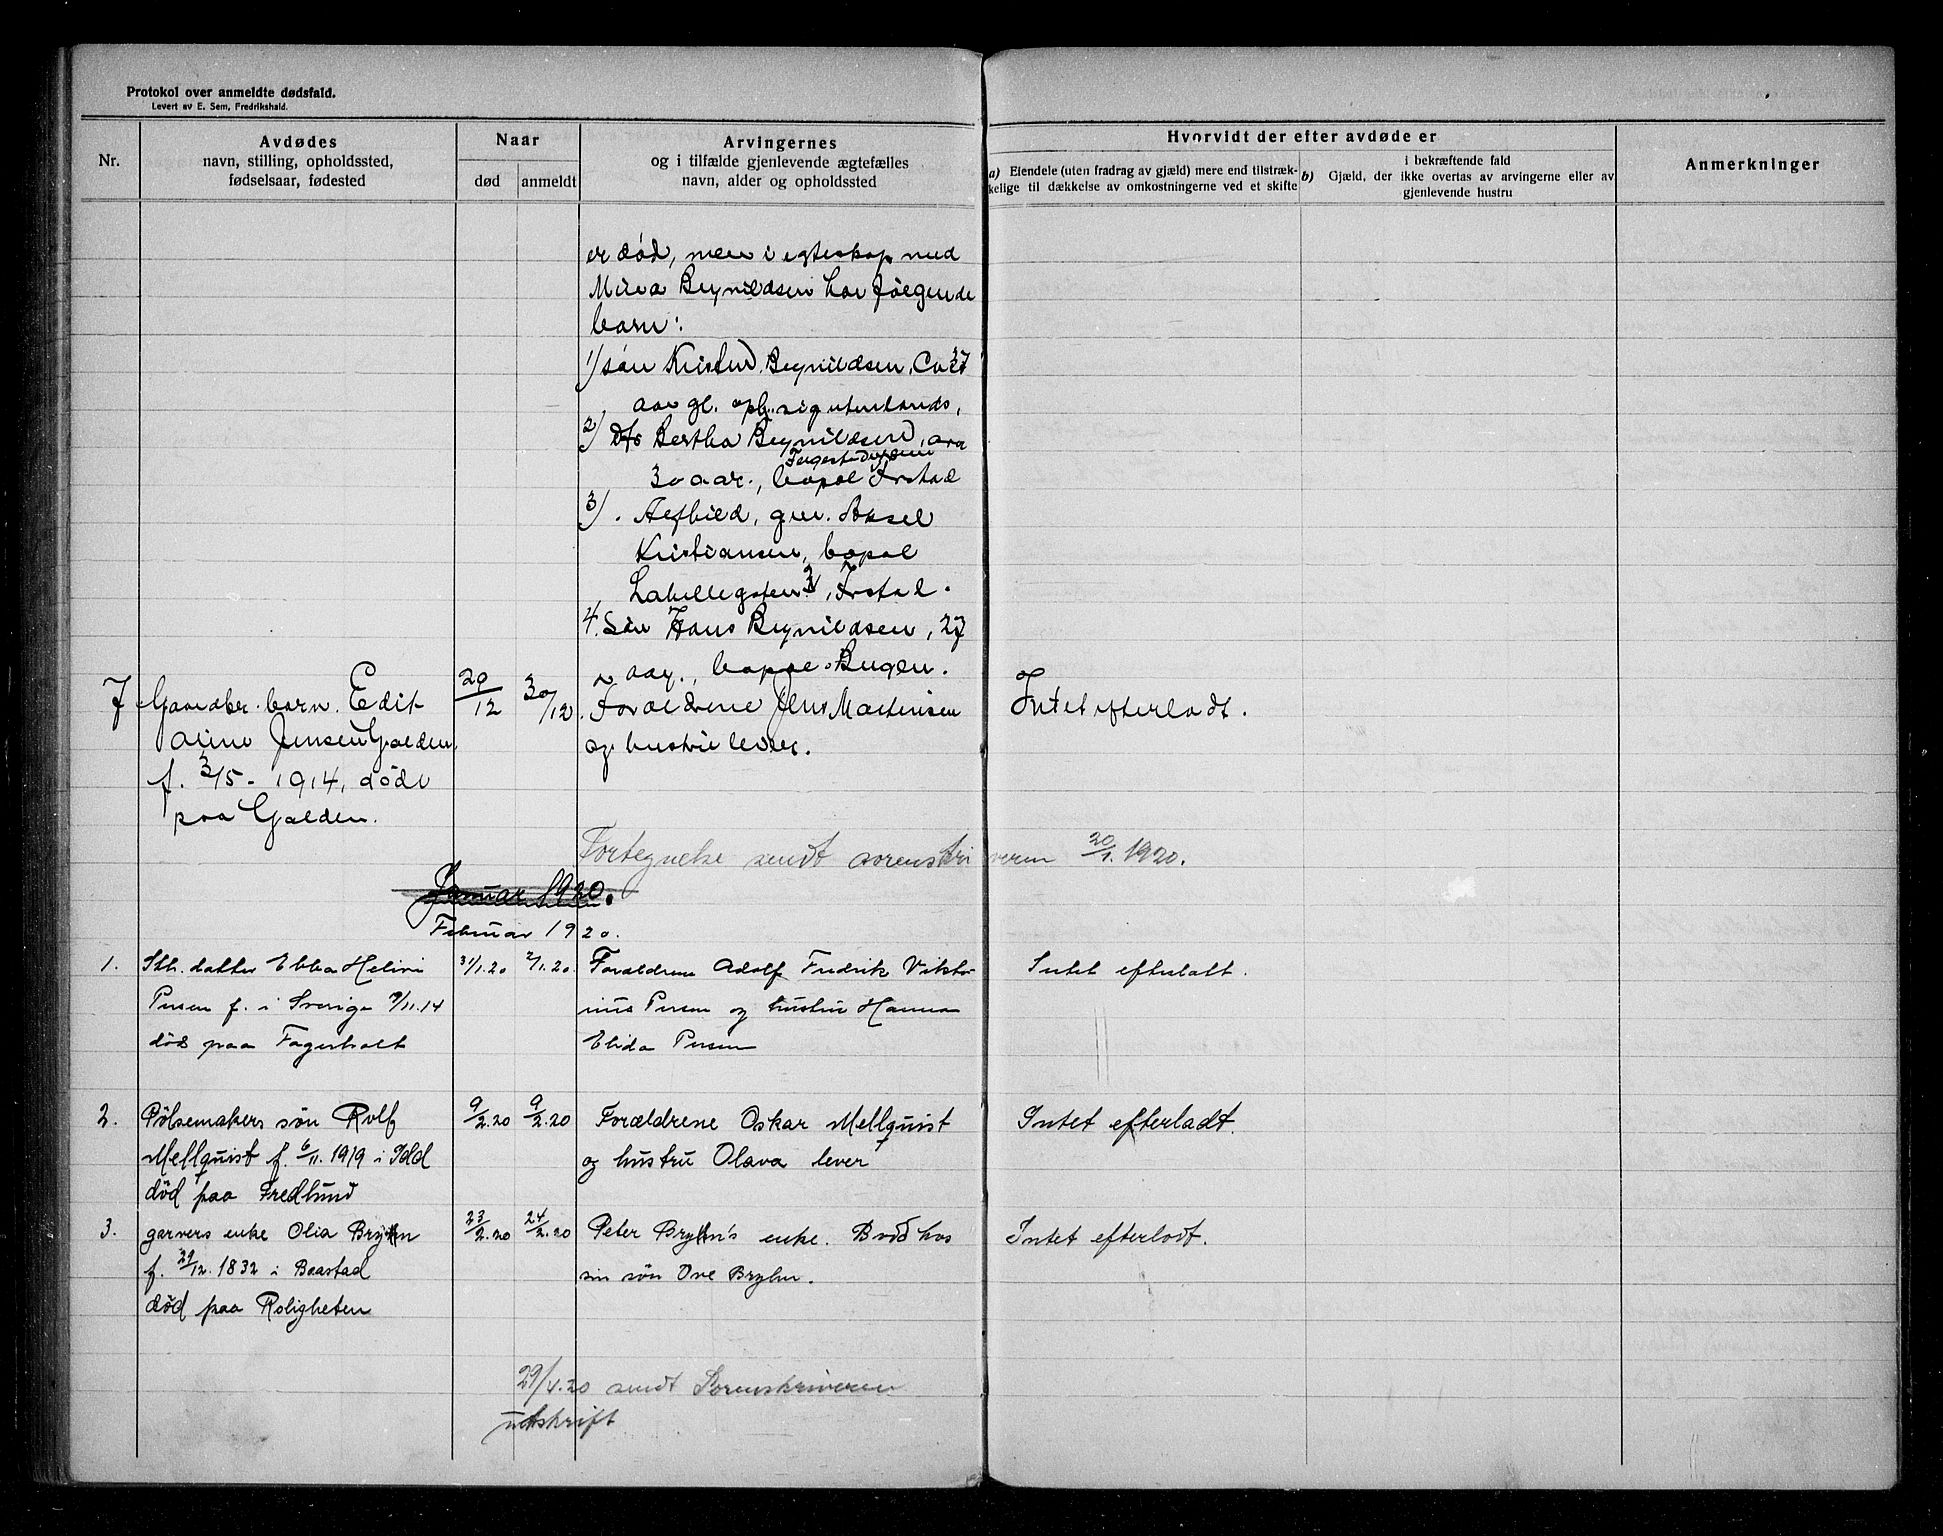 Protokol over anmeldte dødsfald.
Levert av E. Sem, Fredrikshald.
Nr.
Avdødes
navn, stilling, opholdssted,
fødselsaar, fødested
Naar
død
anmeldt
Arvingernes
og i tilfælde gjenlevende ægtefælles
navn, alder og opholdssted
Hvorvidt der efter avdøde er
a) Eiendele (uten fradrag av gjæld) mere end tilstræk-
kelige til dækkelse av omkostningerne ved et skifte
i bekræftende fald
b) Gjæld, der ikke overtas av arvingerne eller av
gjenlevende hustru
Anmerkninger
er død, men i egteskap med
Brynildsen har følgende
barn:
1/ søn Kristian Brynildsen, Ca 37
aar gl. oph. sig utenlands,
2) Dtr Bertha Brynildsen, ca
30 aar., bopæl Fr.stad
3) . , gm. Aksel
Kristiansen, bopæl
, Fr.stad.
4. Søn Hans Brynildsen, 27
aar., bopæl
7 Gaardbr. barn. Edit 20/12 30/12 Forældrene Jens Martinsen Intet efterladt.
Aline Jensen Galden og hustru lever.
f. 3/5 - 1914, døde
paa Galden.
Fortegnelse sendt sorenskriveren 20/1. 1920.
Januar 1920.
Februar 1920.
1. datter Ebba Helivi 31/1.20 2/1.20. Forældrene Adolf Fredrik Vikto- Intet efterlatt.
Persen f. i Sverige 9/11.14 rius Persen og hustru Hanna
død paa Fagerholt Elida Persen
2. Pølsemakers søn Rolf 9/2.20 9/2.20 Forældrene Oskar Mellquist Intet efterladt.
Mellquist f. 6/11. 1919 i Idd og hustru Olava lever
død paa Fredlund
3. garvers enke Olia Bryhn 23/2.20 24/2.20 Peter Bryhn's enke. Bodd hos Intet efterladt.
f. 29/12. 1832 i Baastad sin søn Ove Bryhn.
død paa Roligheten
29/4.20 sendt Sorenskriveren
utskrift